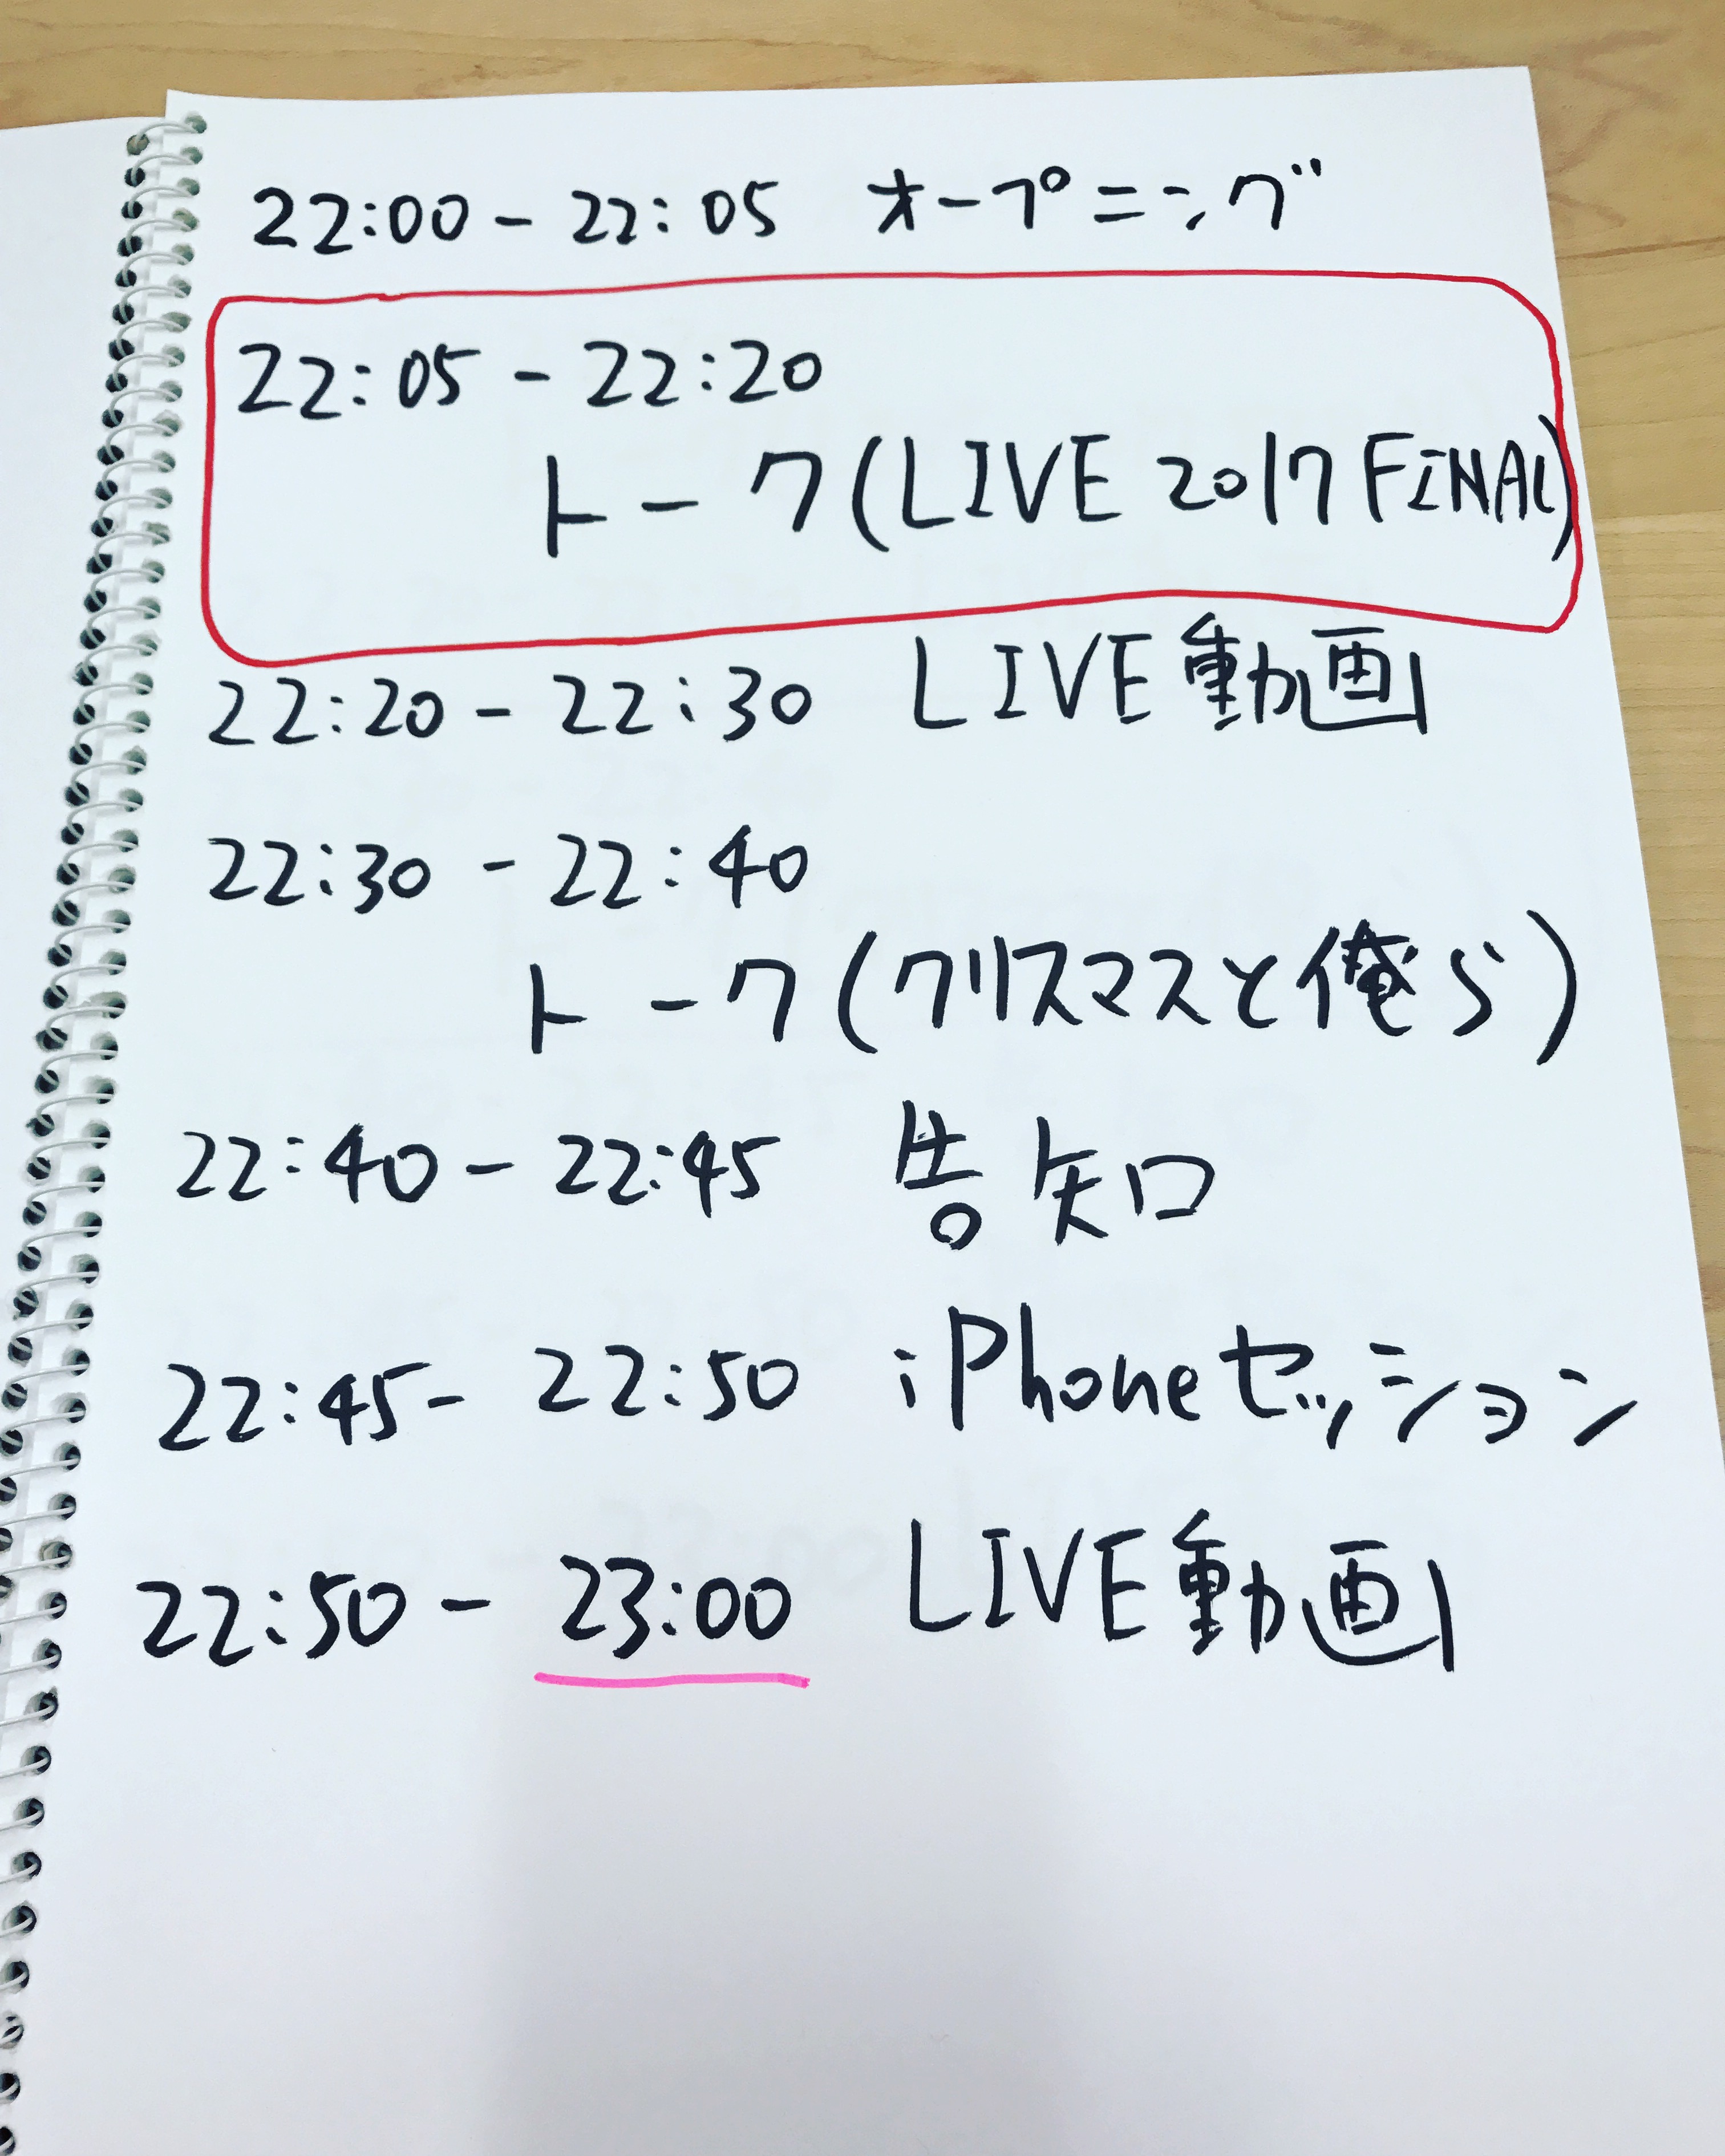 22:00 - 22:05 オープニング
22:05 - 22:20
トーク(LIVE 2017 FINAL)
22:20 - 22:30 LIVE動画
22:30 - 22:40
トーク(クリスマスと俺ら)
22:40 - 22:45 告知
22:45 - 22:50 iPhoneセッション
22:50 - 23:00 LIVE動画